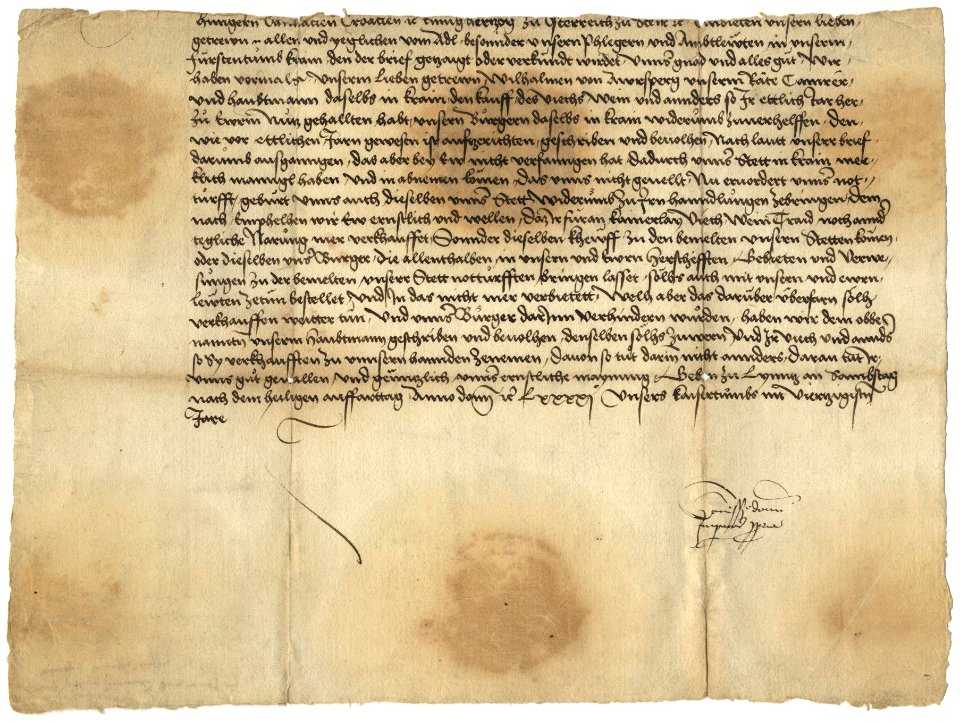 Hungern Dalmatien Croatien ꝛc kunig herzog zu Osterreich zu Steir ꝛc Embieten unsern lieben
getrewn allen und yeglichen vom Adl besonder unsern Phlegern und Ambtlewten in unserm
fürstentumb krain den der brief getzaigt oder verkündt wirdet unns gnad und alles gut Wir
haben vormals unserm lieben getrewn Wilhalmen von Awrsperg unserm Räte Camrer
und haubtmann daselbs in krain den kauff des viechs wein und annders so Ir ettlich Jar her
zu Ewrm nutz gehallten habt unsern Burgern daselbs in krain widerumb zuverhelffen den
wie vor ettlichen Jarn gewesn ist aufzerichten geschriben und bevolhen Nach laut unsrr brief
darumb ausganngen das aber bey Ew nicht verfanngen hat dadurch unnsr Stett in krain mer
klich manngl haben und in abnemen komen Das unns nicht gevellt Nu ervordert unnsr not
turfft geburt unns auch dieselben unnsr Stett widerumb zu Irn hanndlungen zebringen Dem
nach Emphelhen wir Ew ernstlich und wellen Daz Ir furan kainerlay Viech Wein Traid noch annd
tegliche Narung mer verkhauffet Sonnder dieselben kheuff zu den bemelten unsern Stetten komen
oder dieselben unnsr Burger die allenthalben in unsern und Ewrn Herschefften Gebieten und Verwe
sungen zu der bemelten unsrr Stett notturfften bringen lasset solhs auch mit unsern und ewrn
lewten zetun bestellet Und In das nicht mer verbietett Welh aber das daruber uberfarn solh
verkhauffen weitter tun Und unnsr Burger dar Inn verhindern wurden haben wir dem obbe
namtn unserm Haubtmann geschriben und bevolhen denselben solhs zuwern Und Ir Viech und annds
so Sy verkhaufften zu unnsern hannden zenemen davon so tut darin nicht annders daran tut Ir
unns gut gevallen und genntzlich unnsr ernstliche maynung Geben zu Lynntz an Sambstag
nach dem heiligen auffarttag Anno domi ꝛc Lxxxxj Unsers kaisertumbs im Vierzigistn
Jare
Comissio domi
Imperatoris ppria